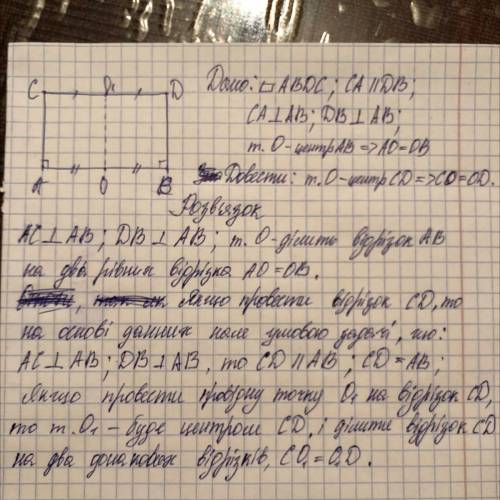 C O₁ D
Дано: □ABDC; CA∥DB;
CA⊥AB; DB⊥AB;
т. O - центр AB => AO=OB
A O B
Довести: т. O - центр CD => CO=OD.
Розв'язок
AC⊥AB; DB⊥AB; т. O - ділить відрізок AB
на два рівних відрізка AO=OB.
якщо провести відрізок CD, то
на основі данних нам умовою задачі, що:
AC⊥AB; DB⊥AB, то CD∥AB; CD=AB;
Якщо провести точку O₁ на відрізок CD,
то т. O₁ - буде центром CD, і ділить відрізок CD
на два відрізків, CO₁=O₁D.